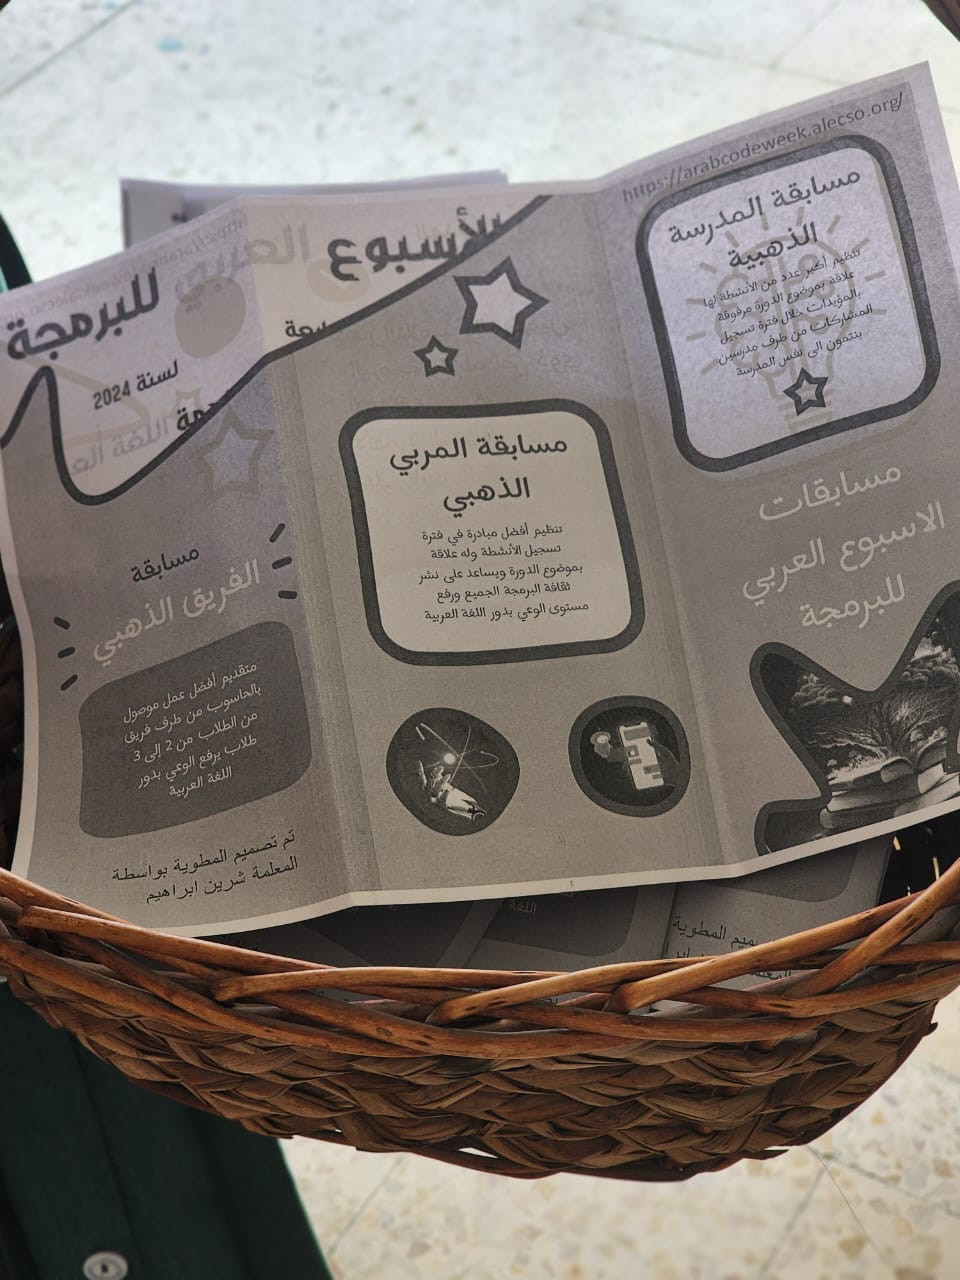 https://arabcodeweek.alecso.org/
مسابقة المدرسة
الذهبية
تنظيم أكبر عدد من الأنشطة لها
علاقة بموضوع الدورة مرفوقة
بالمؤيدات خلال فترة تسجيل
المشاركات من طرف مدرسين
ينتمون الى نفس المدرسة
مسابقات
الاسبوع العربي
للبرمجة
الأسبوع
مسابقة المربي
الذهبي
تنظيم أفضل مبادرة في فترة
تسجيل الأنشطة وله علاقة
بموضوع الدورة ويساعد على نشر
ثقافة البرمجة الجميع ورفع
مستوى الوعي بدور اللغة العربية
للبرمجة
لسنة 2024
مسابقة
الفريق الذهبي
متقديم أفضل عمل موصول
بالحاسوب من طرف فريق
من الطلاب من 2 إلى 3
طلاب يرفع الوعي بدور
اللغة العربية
تم تصميم المطوية بواسطة
المعلمة شرين ابراهيم
المطوية